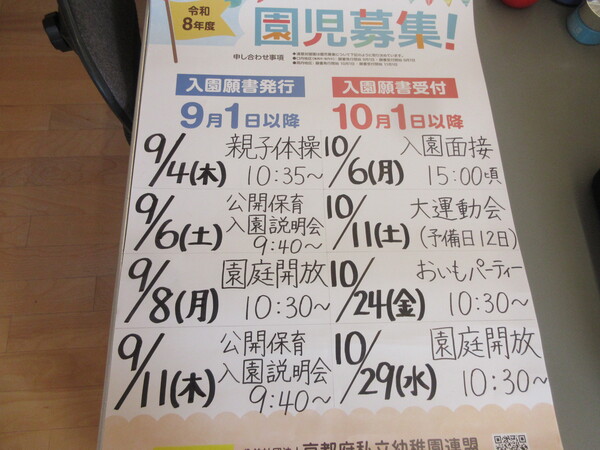 令和
8年度
園児募集!
申し合わせ事項
入園願書発行
9月1日以降
入園願書受付
10月1日以降
9/4(木) 親子体操
10:35~
9/6(土) 公開保育
入園説明会
9:40~
9/8(月) 園庭開放
10:30~
9/11(木) 公開保育
入園説明会
9:40~
10/6(月) 入園面接
15:00頃
10/11(土) 大運動会
(予備日12日)
10/24(金) おいもパーティー
10:30~
10/29(水) 園庭開放
10:30~
京都府私立幼稚園連盟